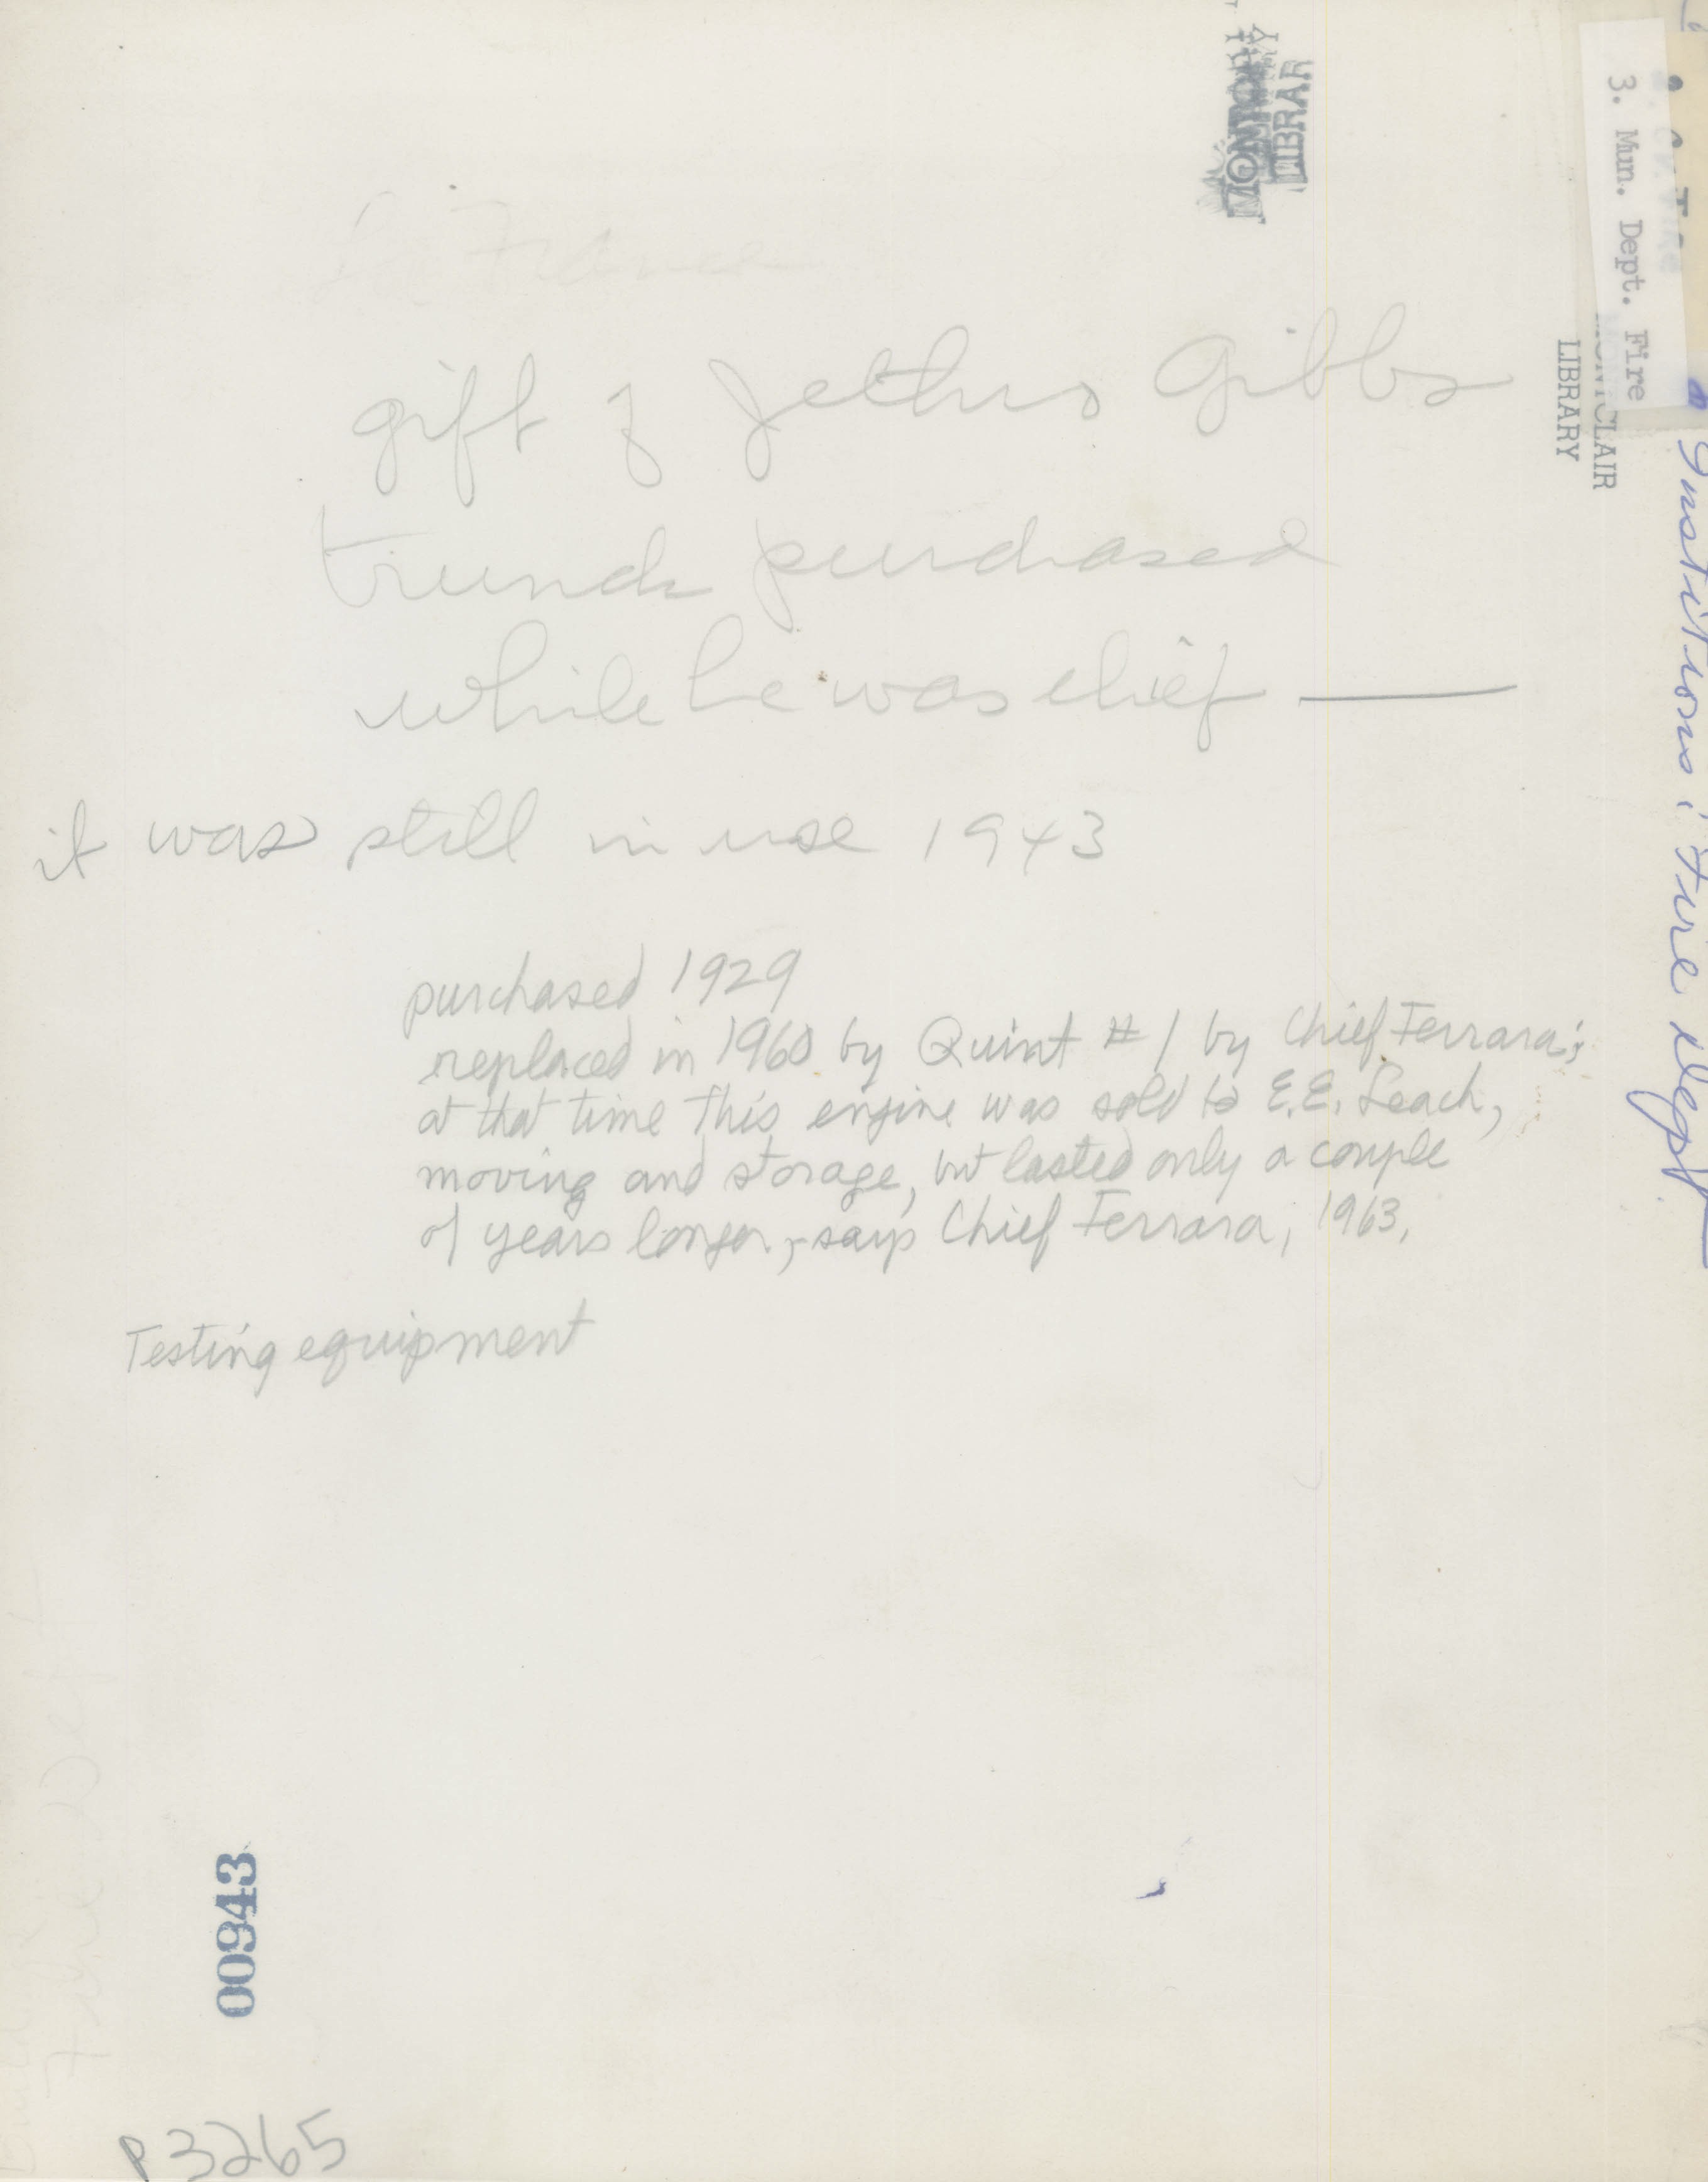 MONTCLAIR
LIBRAR
3. Mun. Dept. Fire
MONTCLAIR
LIBRARY
Institutions: Fire Dept
La France
gift of Jethro Gibbs
trunck purchased
while he was chief —
it was still in use 1943
purchased 1929
replaced in 1960 by Quint #1 by Chief Ferrara;
at that time this engine was sold to E.E. Leach,
moving and storage, but lasted only a couple
of years longer, - says Chief Ferrara, 1963.
Testing equipment
00943
P3265